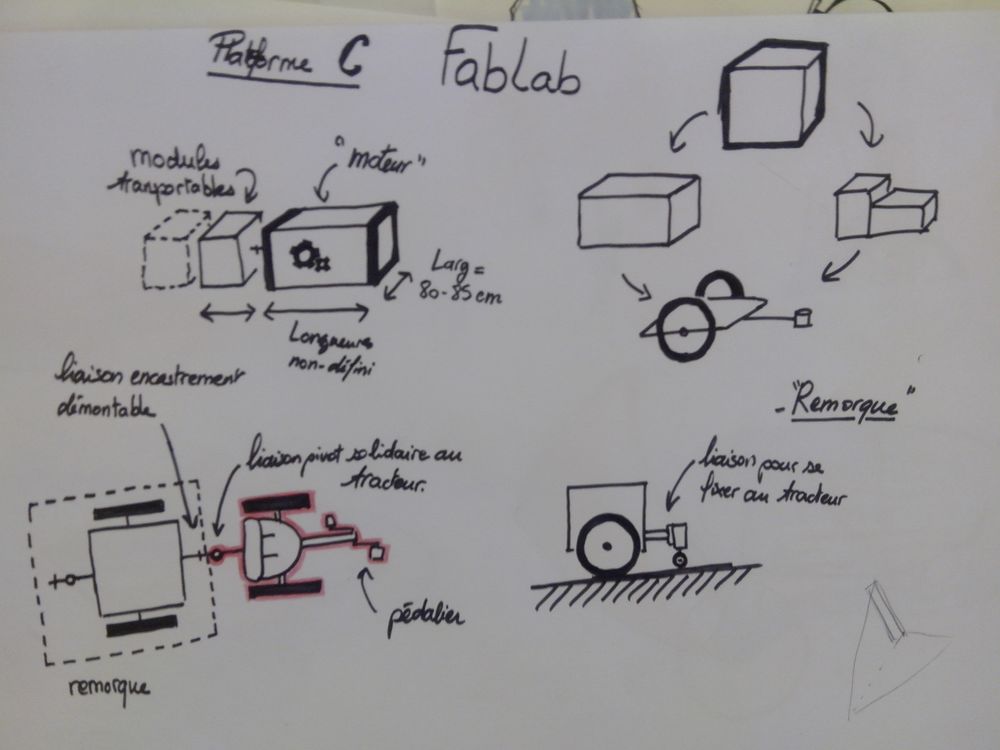 Platforme C
FabLab
modules
tranportables
"moteur"
Larg =
80-85 cm
Longueurs
non-défini
liaison encastrement
démontable
liaison pivot solidaire au
tracteur.
pédalier
remorque
- "Remorque"
liaison pour se
fixer au tracteur